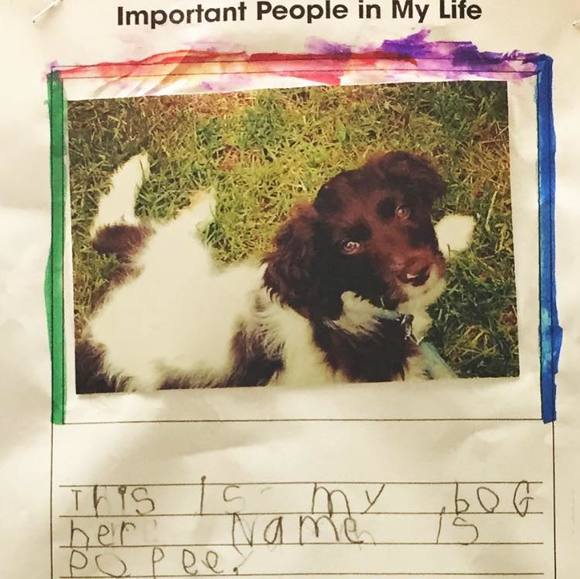 Important People in My Life
This Is my bOG
her Name is
POPee.